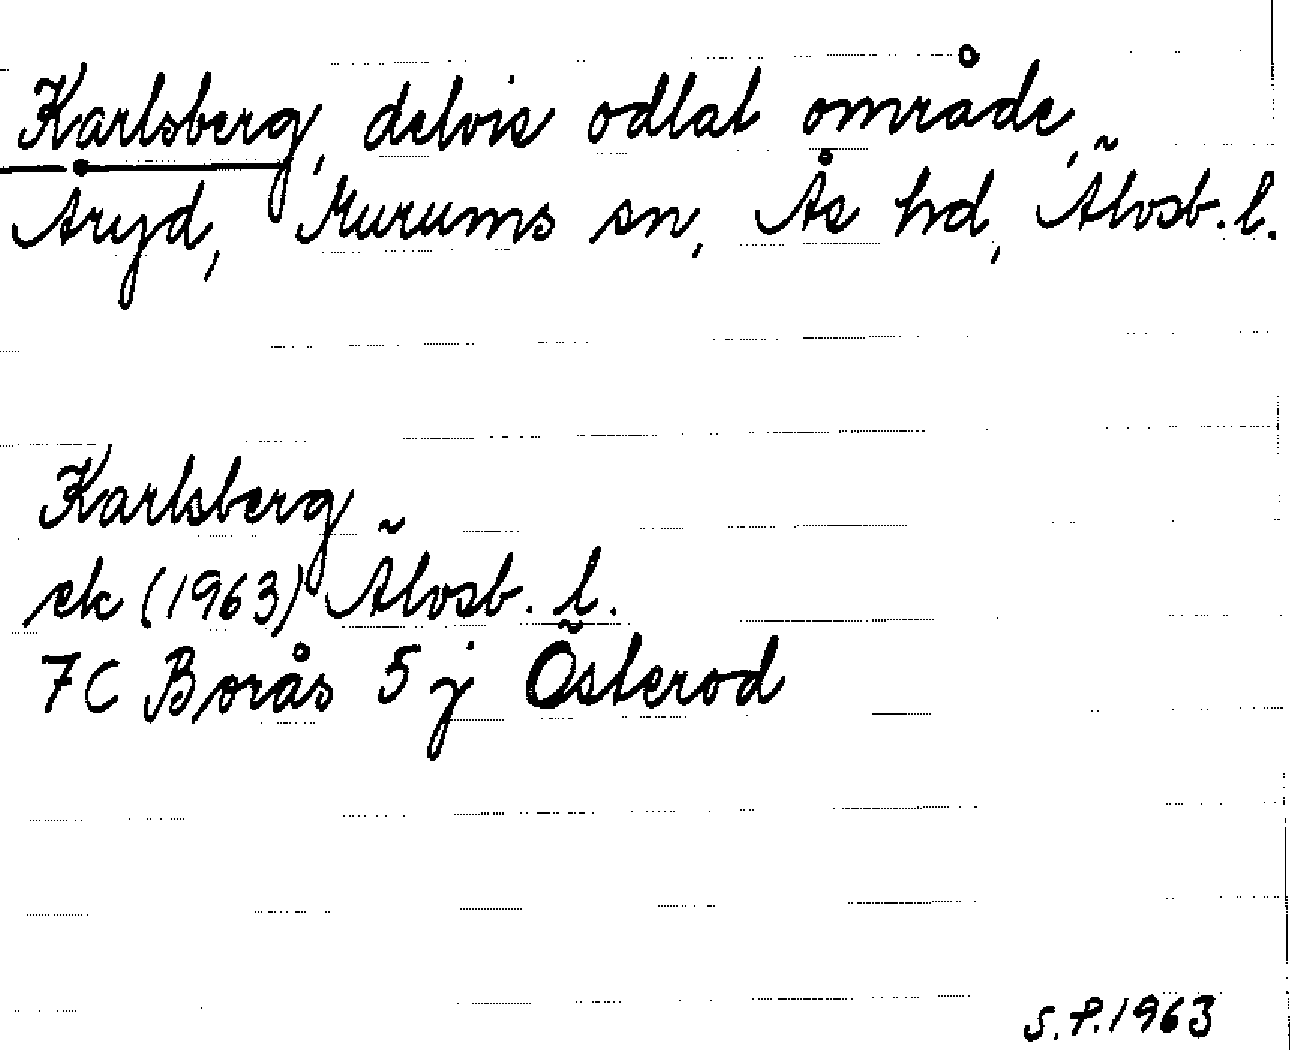 Karlsberg, delvis odlat område,
Åryd, Murums sn, Ås hd, Älvsb. l.
Karlsberg
ek (1963) Älvsb. l.
7C Borås 5 j Österod
S.P. 1963